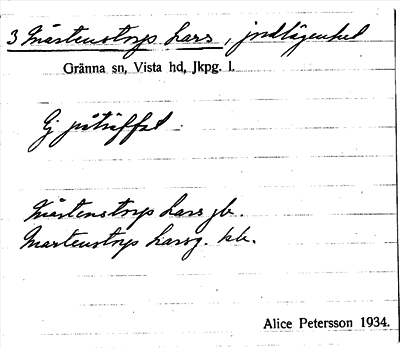 3 Mårtenstorps Lars, jordlägenhet
Gränna sn, Vista hd, Jkpg. l.
Ej påträffat.
Mårtenstorps Lars jb.
Martenstorps Larsg. kk.
Alice Petersson 1934.